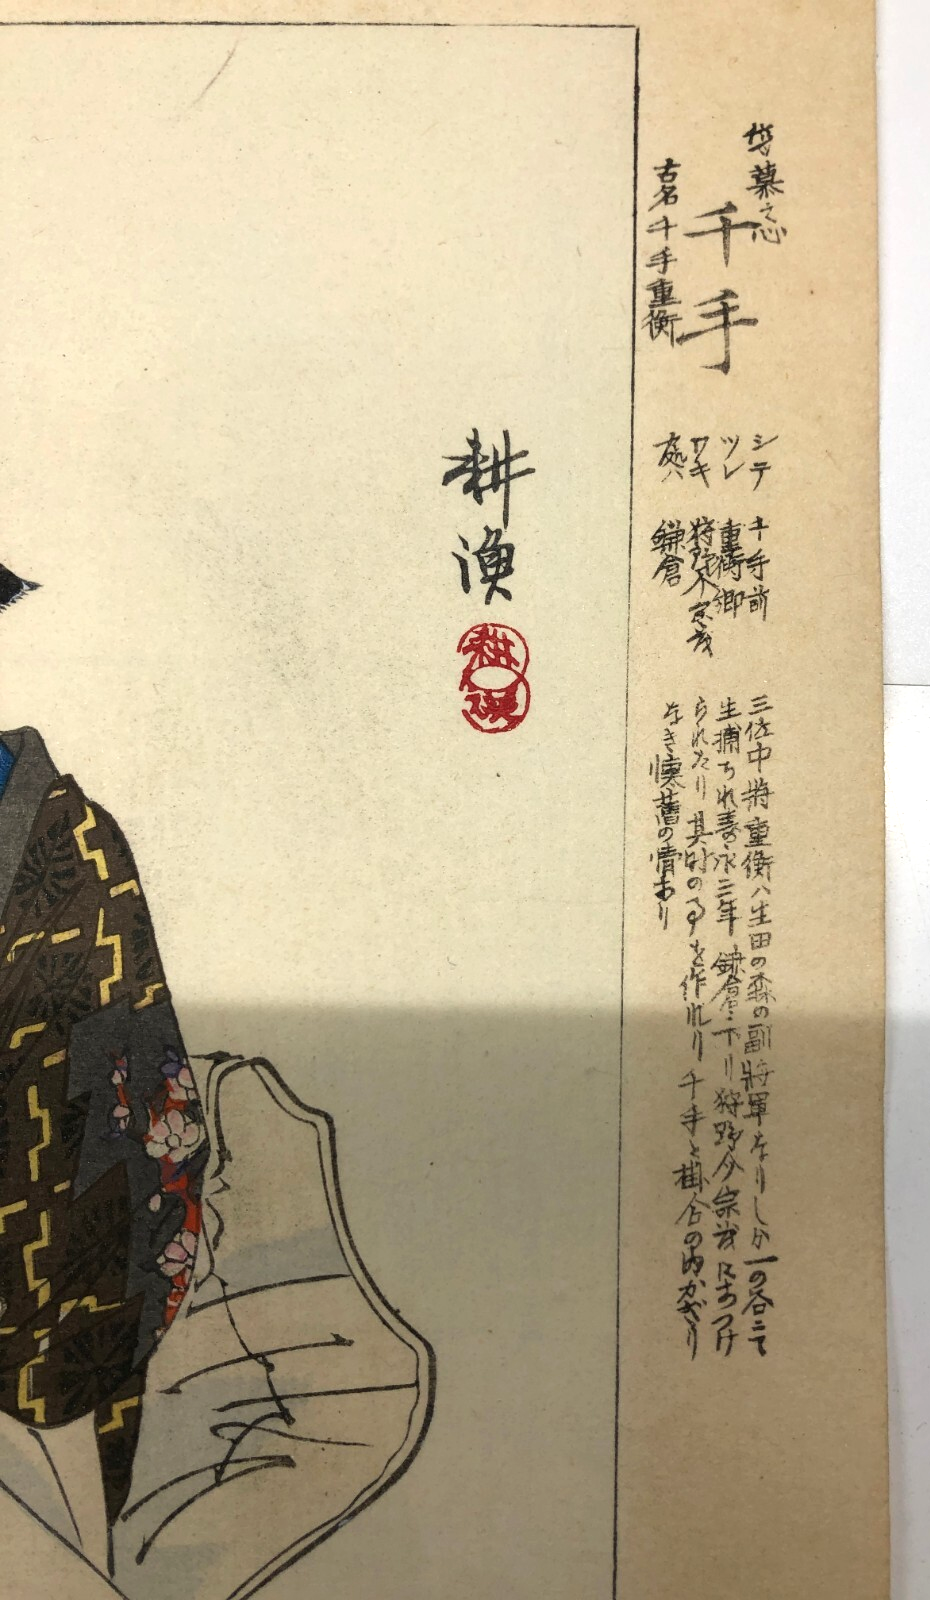 恋慕之心
千手
古名千手重衡
シテ 千手前
ツレ 重衡卿
ワキ 狩野介宗茂
処ハ 鎌倉
三位中将重衡ハ生田の森の副将軍なりしか一の谷ニて
生捕られ寿永三年鎌倉ニ下り狩野介宗茂にあつけ
られたり其時の事を作れり千手と掛合の内かぎり
なき懐旧の情あり
耕漁
耕漁